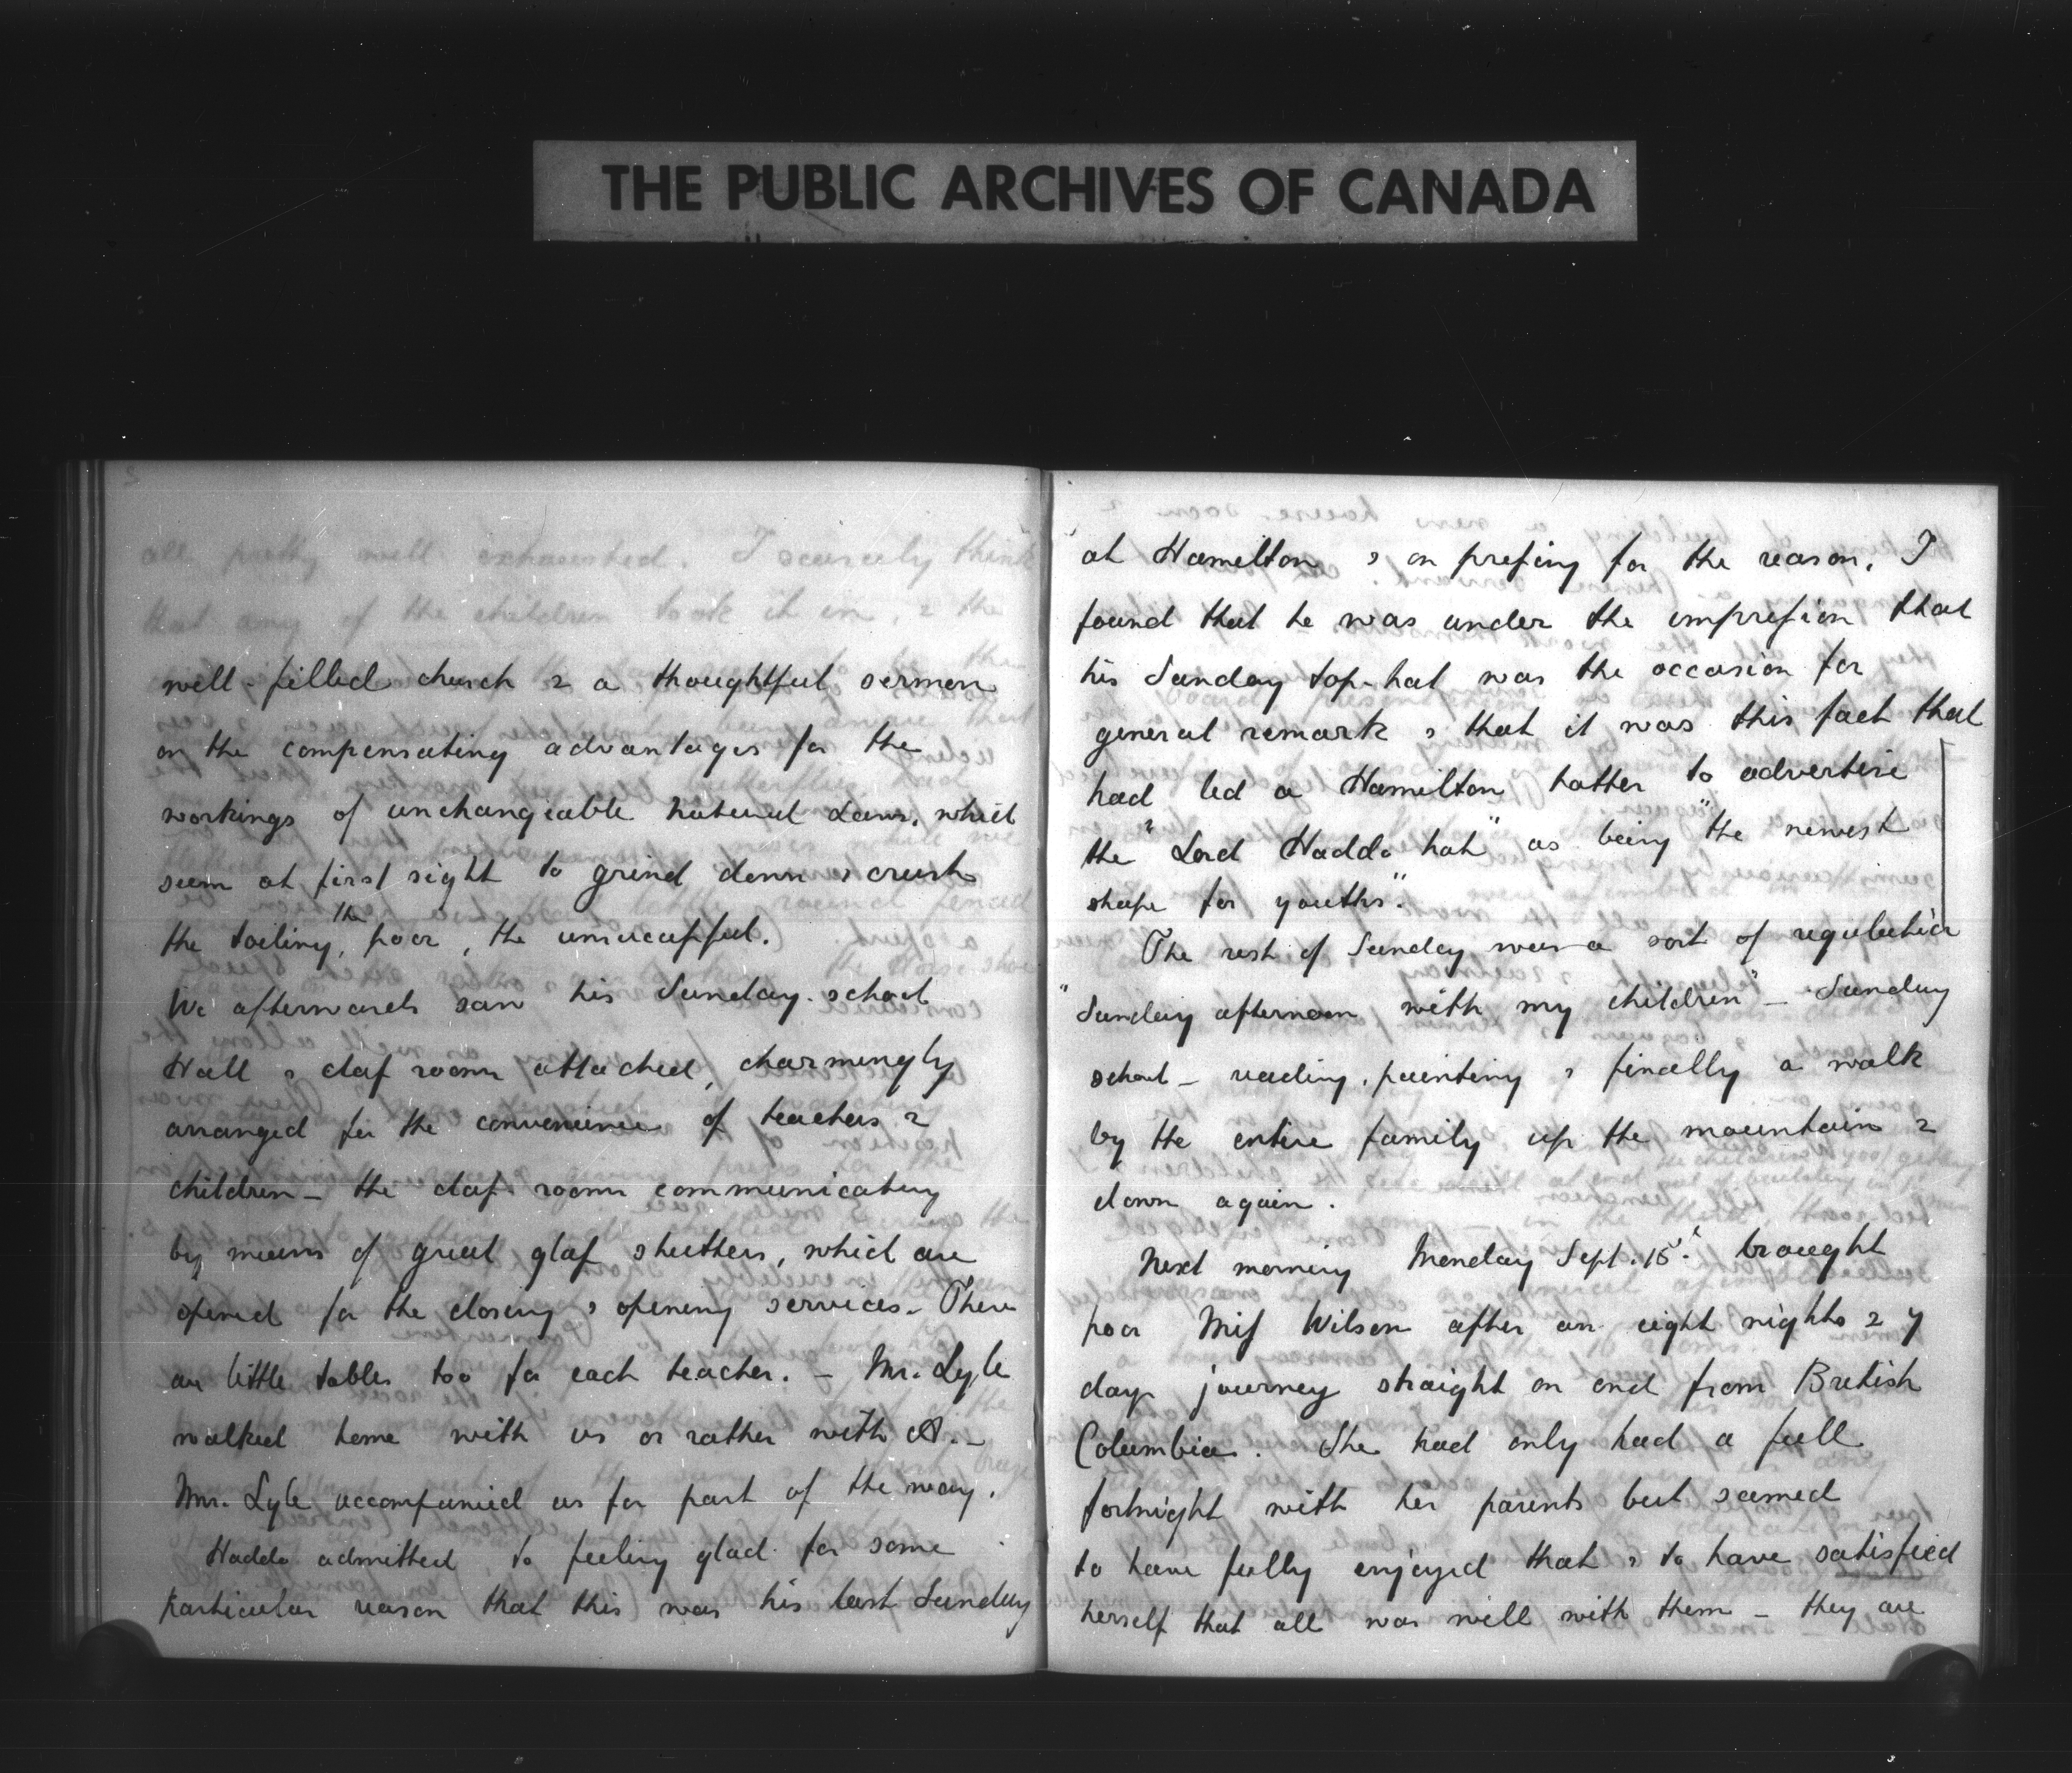 THE PUBLIC ARCHIVES OF CANADA
all pretty well exhausted. I scarcely think
that any of the children took it in, & the
well-filled church & a thoughtful sermon
on the compensating advantages for the
workings of unchangeable natural laws, which
seem at first sight to grind down & crush
the toiling, the poor, the unsuccessful.
We afterwards saw his Sunday-school
Hall & class room attached, charmingly
arranged for the convenience of teachers &
children – the class room communicating
by means of great glass shutters, which are
opened for the closing & opening services. There
are little tables too for each teacher. – Mr. Lyle
walked home with us or rather with A. –
Mrs. Lyle accompanied us for part of the way.
Haddo admitted to feeling glad for some
particular reason that this was his last Sunday
at Hamilton & on pressing for the reason, I
found that he was under the impression that
his Sunday top-hat was the occasion for
general remark & that it was this fact that
had led a Hamilton hatter to advertise
the "Lord Haddo hat" as being "the newest
shape for youths".
The rest of Sunday was a sort of regulation
"Sunday afternoon with my children" – Sunday
school – reading, painting & finally a walk
by the entire family up the mountain &
down again.
Next morning Monday Sept. 15th brought
poor Miss Wilson after an eight nights & 7
days journey straight on end from British
Columbia. She had only had a full
fortnight with her parents but seemed
to have fully enjoyed that & to have satisfied
herself that all was well with them – they are